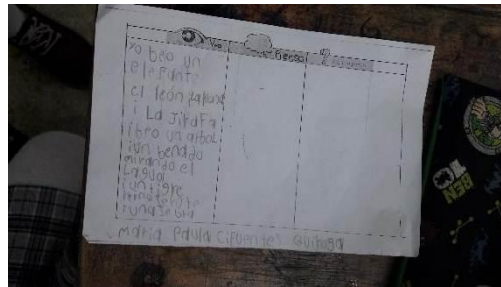 Veo
Pienso
yo beo un
elefante
el león
i La jirafa
i beo un arbol
iun benado
mirando el
iun tigre
Maria Paula Cifuentes Quiroga
BEN
10